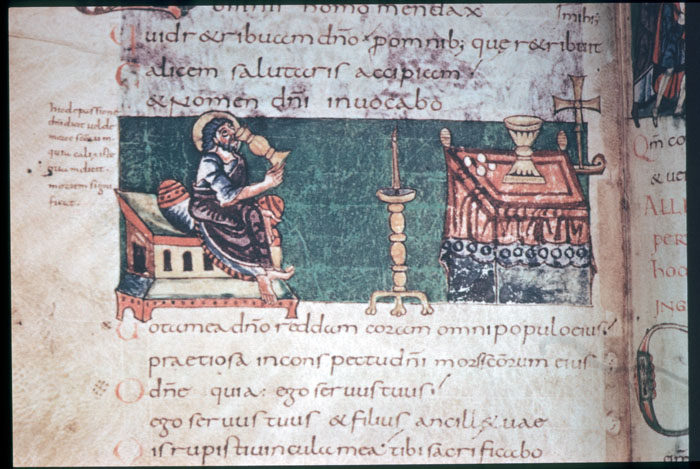 omnis homo mendax
mihi;
Quid r&ribuam dño pro omnib; quę r&ribuit
Calicem salutaris accipiam
& nomen dñi invocabo
Uota mea dño reddam coram omni populo eius
praetiosa in conspectu dñi mors scorum eius
O dñe quia ego servus tuus
ego servus tuus & filius ancillę tuae
Disrupisti vincula mea tibi sacrificabo
Qm co
& ve
ALL
PER
ING